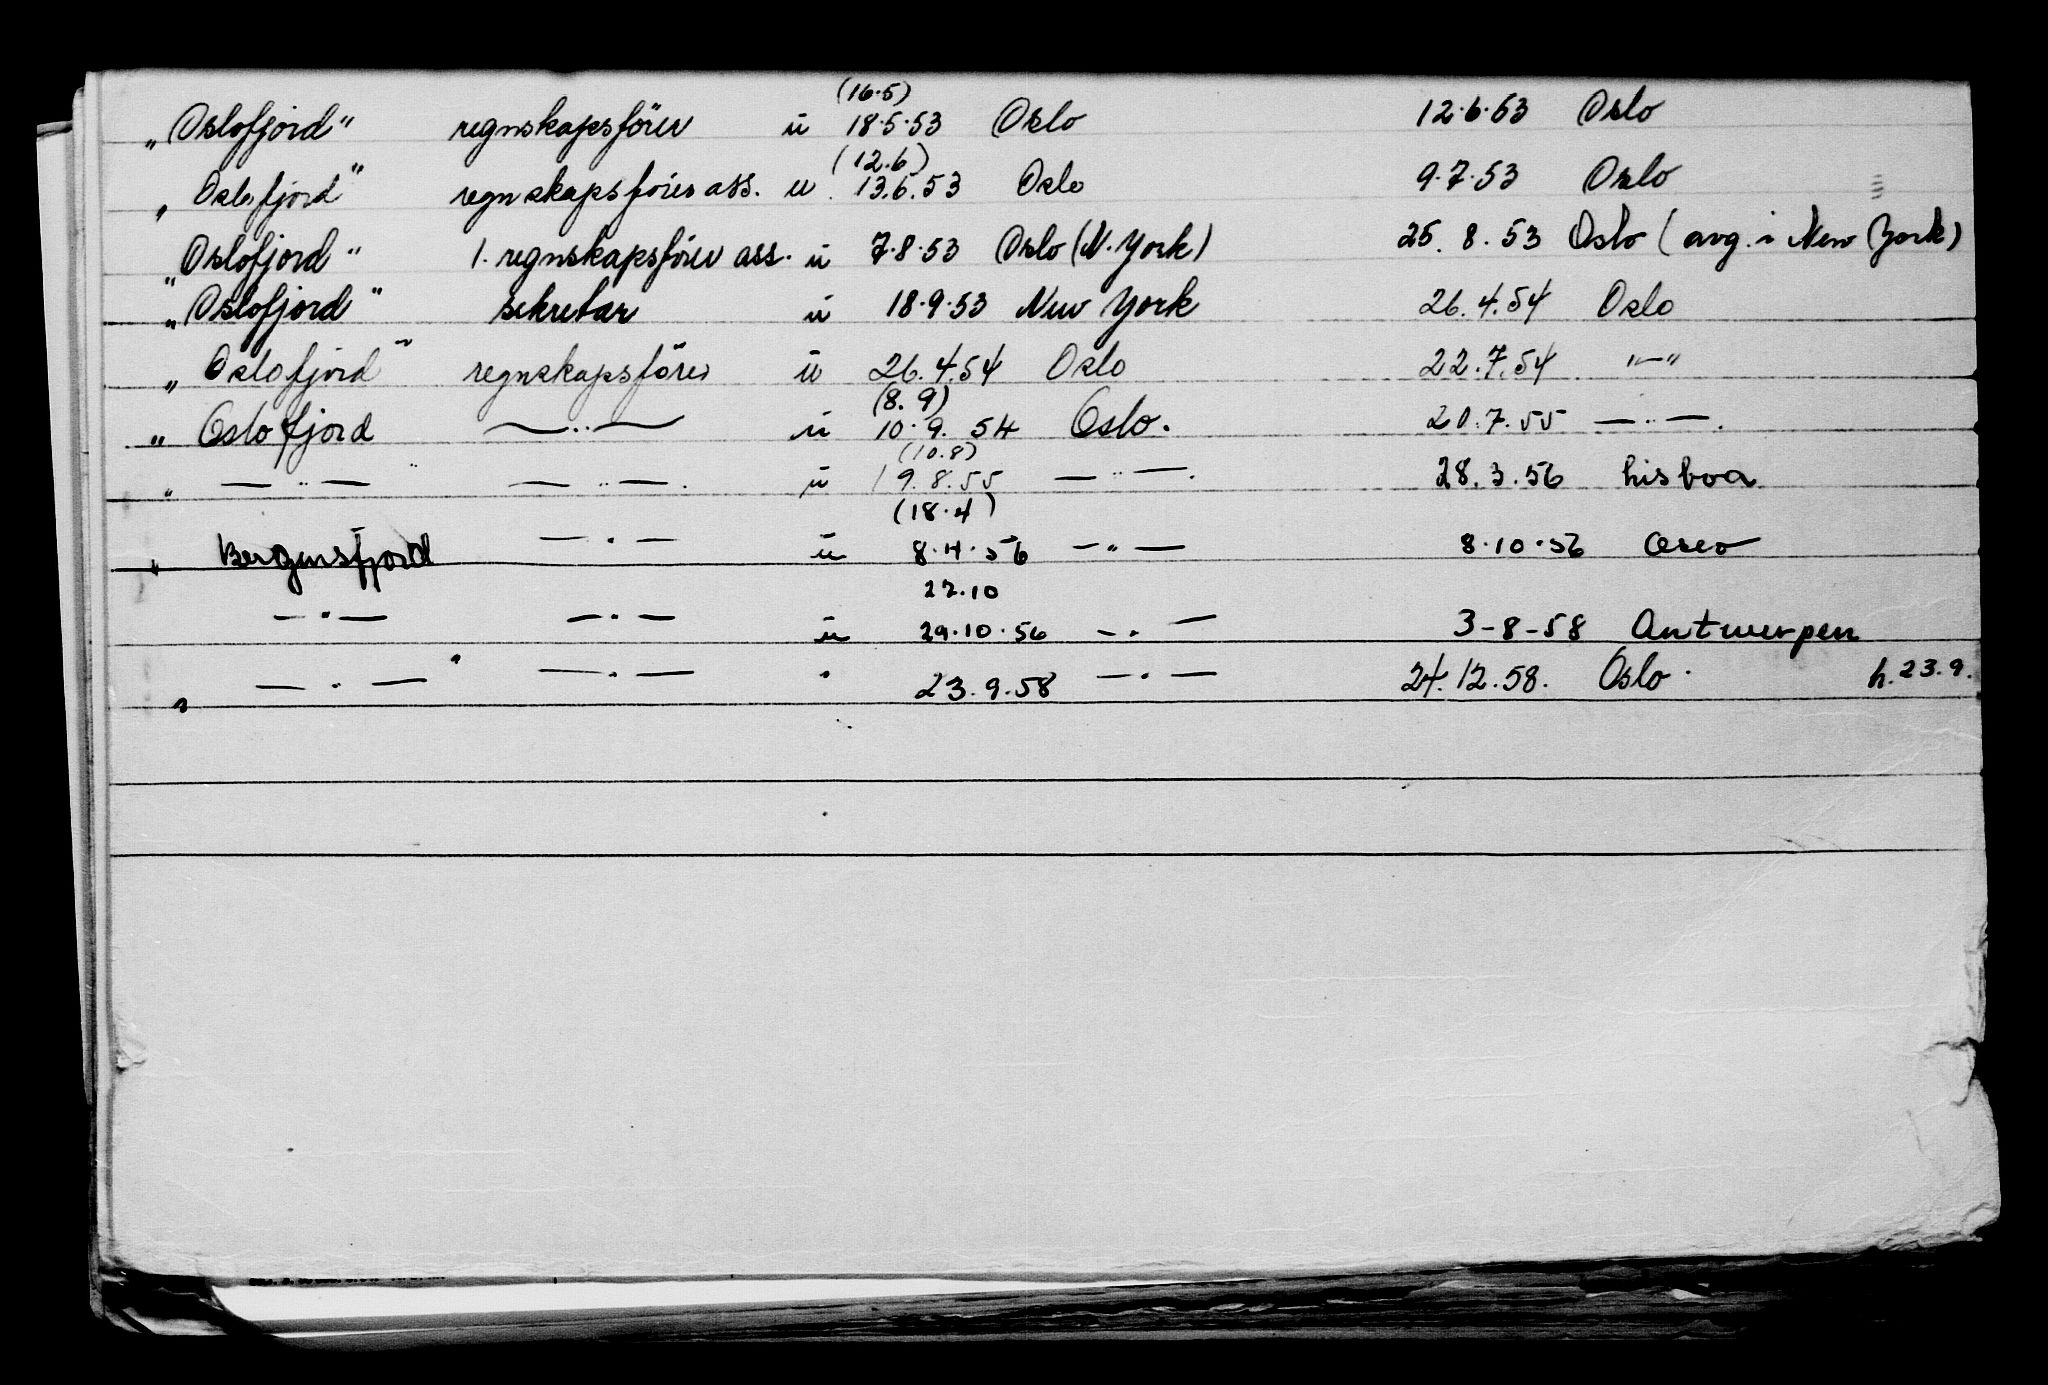 (16.5)
„ Oslofjord" regnskapsförer u 18.5.53 Oslo 12.6.53 Oslo
(12.6)
„ Oslofjord" regnskapsförer ass. u 13.6.53 Oslo 9.7.53 Oslo
„ Oslofjord" 1. regnskapsförer ass. u 7.8.53 Oslo (N. York) 25.8.53 Oslo (avg. i New York)
„ Oslofjord" sekretær u 18.9.53 New York 26.4.54 Oslo
„ Oslofjord" regnskapsförer u 26.4.54 Oslo 22.7.54 "—"
(8.9)
„ Oslofjord — „ — u 10.9.54 Oslo. 20.7.55 — „ —.
(10.8)
„ — „ — " — „ —. u 19.8.55 — „ —. 28.3.56 Lisboa
(18.4)
„ Bergensfjord — " — u 8.4.56 — " — 8.10.56 Oslo
27.10
— " — — " — u 29.10.56 — " — 3-8-58 Antwerpen
„ — " — " — " — " 23.9.58 — " — 24.12.58. Oslo. h. 23.9.